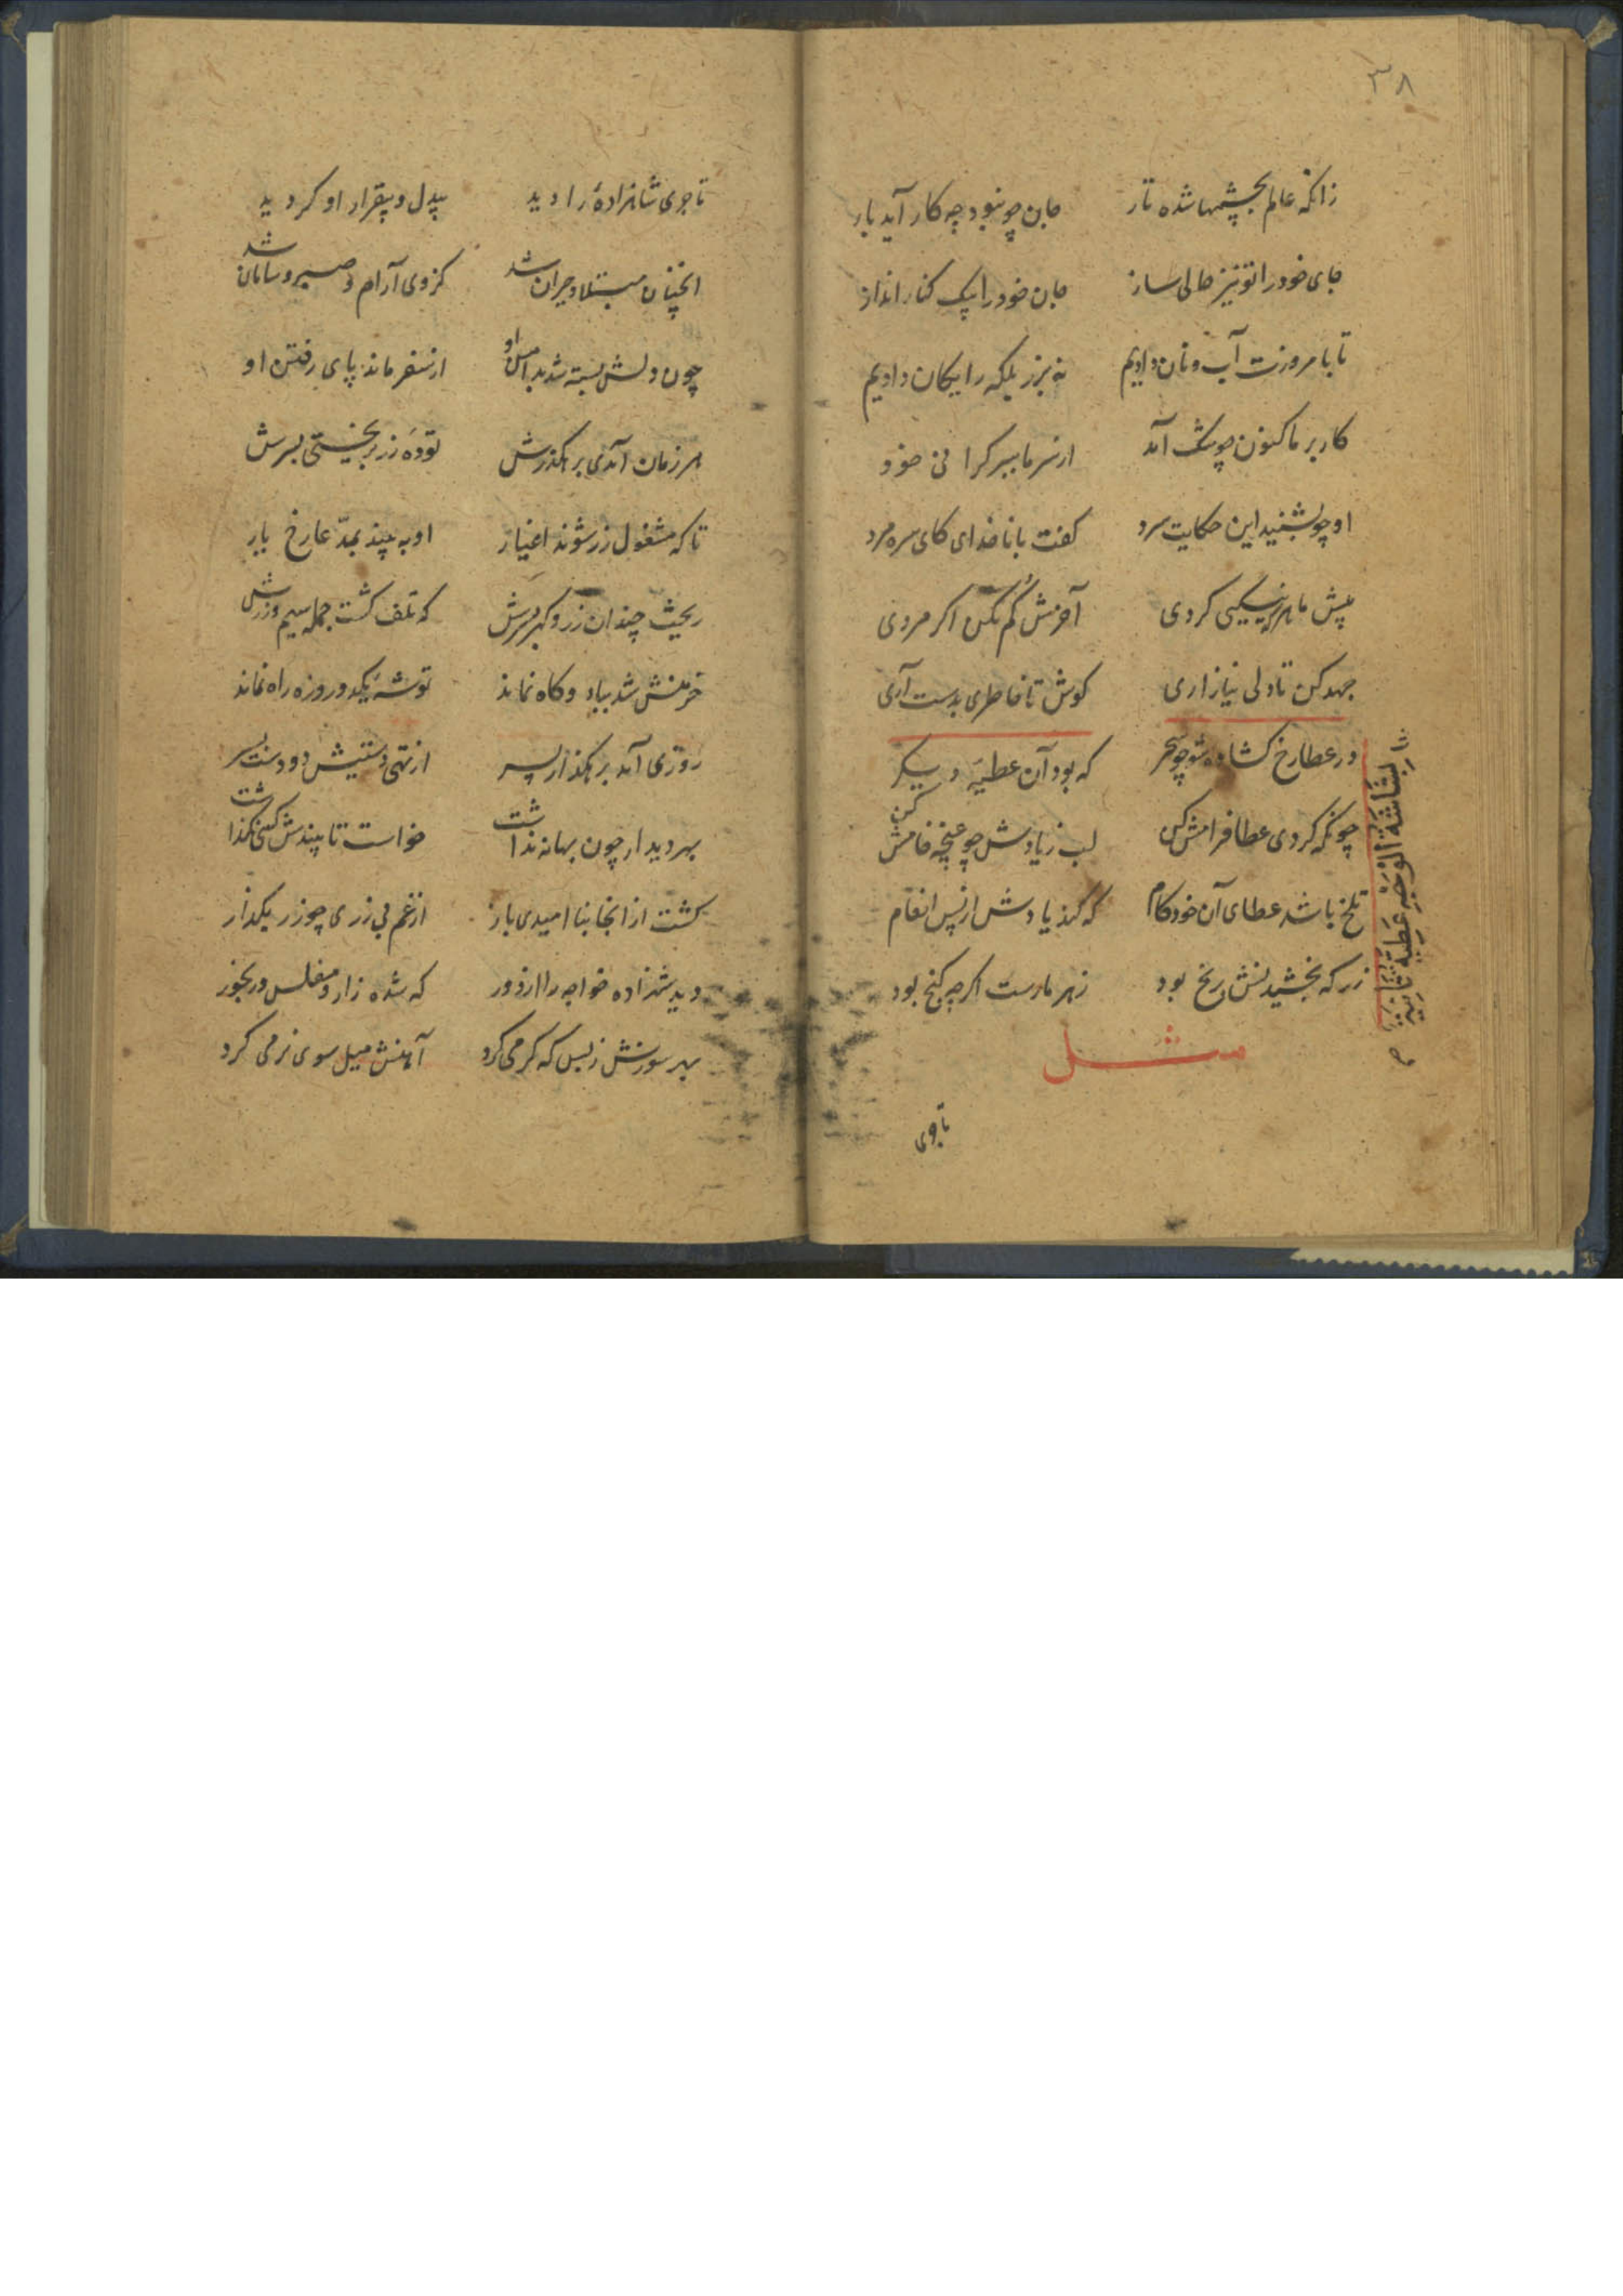 ۳۸
زانکه عالم بچشمها شده تار جان چو نبود چه کار آید یار
جای خود را تو نیز خالی ساز جان خود را بیک کنار انداز
تا بامروزت آب و نان دادیم نه بزر بلکه رایکان دادیم
کار بر ما کنون چو تنک آمد از سر ما ببر کرانی خود
او چو بشنید این حکایت سرد کفت با ناخدای کای سره مرد
پیش ما هر چه نیکیی کردی آخرش کم مکن اکر مردی
جهد کن تا دلی نیازاری کوش تا خاطری بدست آری
در عطا رخ کشاده شو چو سحر که بود آن عطیه دیکر
چونکه کردی عطا فرامش کن لب ز یادش چو غنچه خامش کن
تلخ باشد عطای آن خودکام که کند یادش از پس انعام
زر که بخشیدنش برنج بود زهر مارست اکر چه کنج بود
بشاشة الوجه عطیة ثانیة
مثل
تاجری
تاجری شاهزادهٔ را دید بیدل و بیقرار او کردید
انچنان مبتلا و حیران شد کز وی آرام و صبر و سامان شد
چون دلش بسته شد بدامن او از سفر ماند پای رفتن او
هر زمان آمدی بر هکذرش تودهٔ زر بریختی بسرش
تا که مشغول زر شوند اغیار او به بیند بمدعا رخ یار
ریخت چندان زر و کهر بسرش که تلف کشت جمله سیم و زرش
خرمنش شد بباد و کاه نماند توشهٔ یکدو روزه راه نماند
روزی آمد بر هکذار پسر از تهی دستیش دو دست بسر
بهر دیدار چون بهانه نداشت خواست تا بیندش کسی نکذاشت
کشت از انجا بنا امیدی باز از غم بی زری چو زر بکداز
دید شهزاده خواجه را از دور که شده زار و مفلس و رنجور
بهر سوزش ز بس که کرمی کرد آهنش میل سوی نرمی کرد